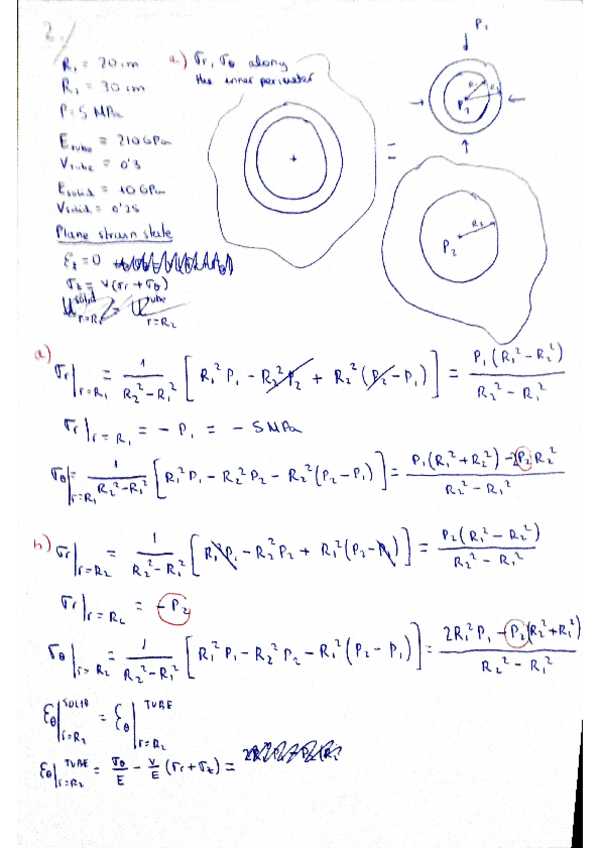 2./
R₁ = 20 cm
R₂ = 30 cm
P = 5 MPa
E tube = 210 GPa
V tube = 0'3
E solid = 10 GPa
V solid = 0'25
Plane strain state
ε_z = 0
σ_z = ν(σr + σθ)
U^solid r=R₂ = U^tube r=R₂
a) σr, σθ along
the inner perimeter
=
P₁
R₁
P₁
R₂
P₂
a)
σr|r=R₁ = 1/(R₂²-R₁²) [R₁²P₁ - R₂²P₂ + R₂²(P₂-P₁)] = P₁(R₁²-R₂²)/(R₂²-R₁²)
σr|r=R₁ = -P₁ = -5 MPa
σθ|r=R₁ = 1/(R₂²-R₁²) [R₁²P₁ - R₂²P₂ - R₂²(P₂-P₁)] = (P₁(R₁²+R₂²) - 2P₂R₂²)/(R₂²-R₁²)
b)
σr|r=R₂ = 1/(R₂²-R₁²) [R₁²P₁ - R₂²P₂ + R₁²(P₂-P₁)] = P₂(R₁²-R₂²)/(R₂²-R₁²)
σr|r=R₂ = -P₂
σθ|r=R₂ = 1/(R₂²-R₁²) [R₁²P₁ - R₂²P₂ - R₁²(P₂-P₁)] = (2R₁²P₁ - P₂(R₂²+R₁²))/(R₂²-R₁²)
εθ|SOLID r=R₂ = εθ|TUBE r=R₂
εθ|TUBE r=R₂ = σθ/E - ν/E (σr+σz) =